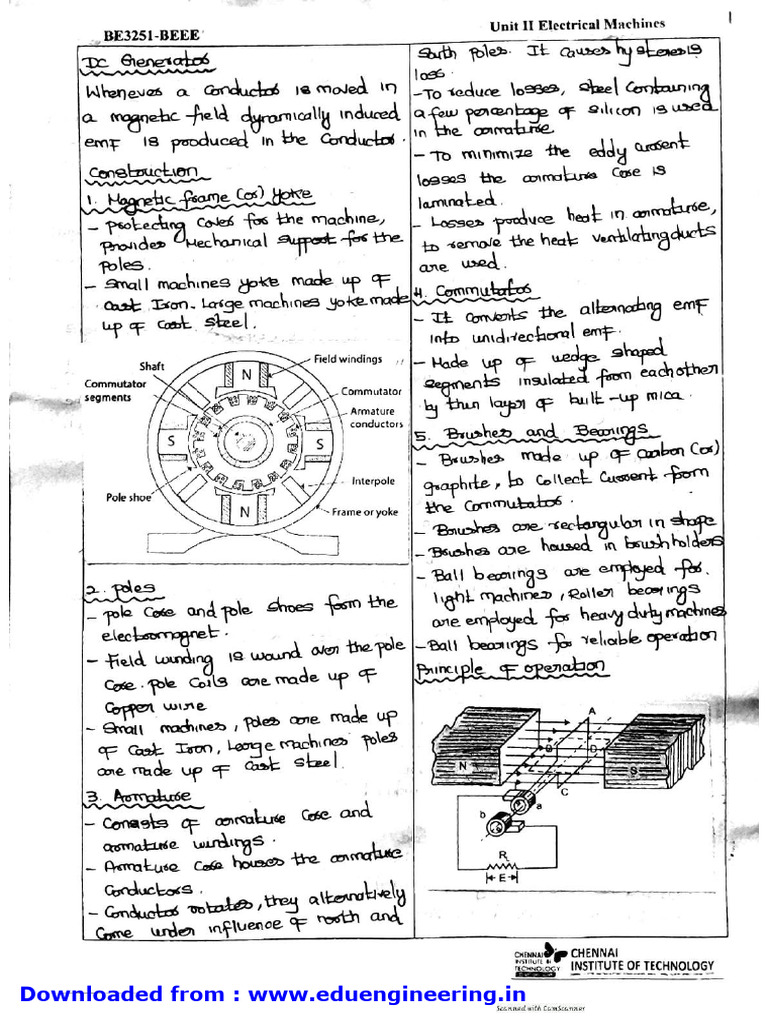 BE3251-BEEE
Unit II Electrical Machines
1
DC Generator
Whenever a conductor is moved in
a magnetic field dynamically induced
emf is produced in the conductor.
Construction
1. Magnetic frame (or) Yoke
- Protecting cover for the machine,
Provides Mechanical support for the
Poles.
- Small machines yoke made up of
Cast Iron. Large machines yoke made
up of Cast Steel.
Shaft
Commutator
segments
Field windings
Commutator
Armature
conductors
Interpole
Frame or yoke
Pole shoe
N
S
S
N
2. Poles
- pole core and pole shoes form the
electromagnet.
- Field winding is wound over the pole
core. Pole coils are made up of
Copper wire
- Small machines, poles are made up
of Cast Iron, Large machines Poles
are made up of Cast Steel.
3. Armature
- Consists of armature core and
armature windings.
- Armature core houses the armature
Conductors.
- Conductor rotates, they alternatively
Come under influence of north and
South Poles. It causes hysteresis
loss.
- To reduce losses, steel containing
a few percentage of silicon is used
in the armature
- To minimize the eddy current
losses the armature core is
laminated.
- Losses produce heat in armature,
to remove the heat ventilating ducts
are used.
4. Commutator
- It converts the alternating emf
into unidirectional emf.
- Made up of wedge shaped
segments insulated from each other
by thin layer of built-up mica.
5. Brushes and Bearings
- Brushes made up of carbon (or)
graphite, to collect current from
the commutator.
- Brushes are rectangular in shape
- Brushes are housed in brush holders
- Ball bearings are employed for
light machines, Roller bearings
are employed for heavy duty machines
- Ball bearings for reliable operation
Principle of operation
A
B
D
N
S
C
a
b
R
E
CHENNAI
INSTITUTE OF
TECHNOLOGY
CHENNAI
INSTITUTE OF TECHNOLOGY
Downloaded from : www.eduengineering.in
Scanned with CamScanner